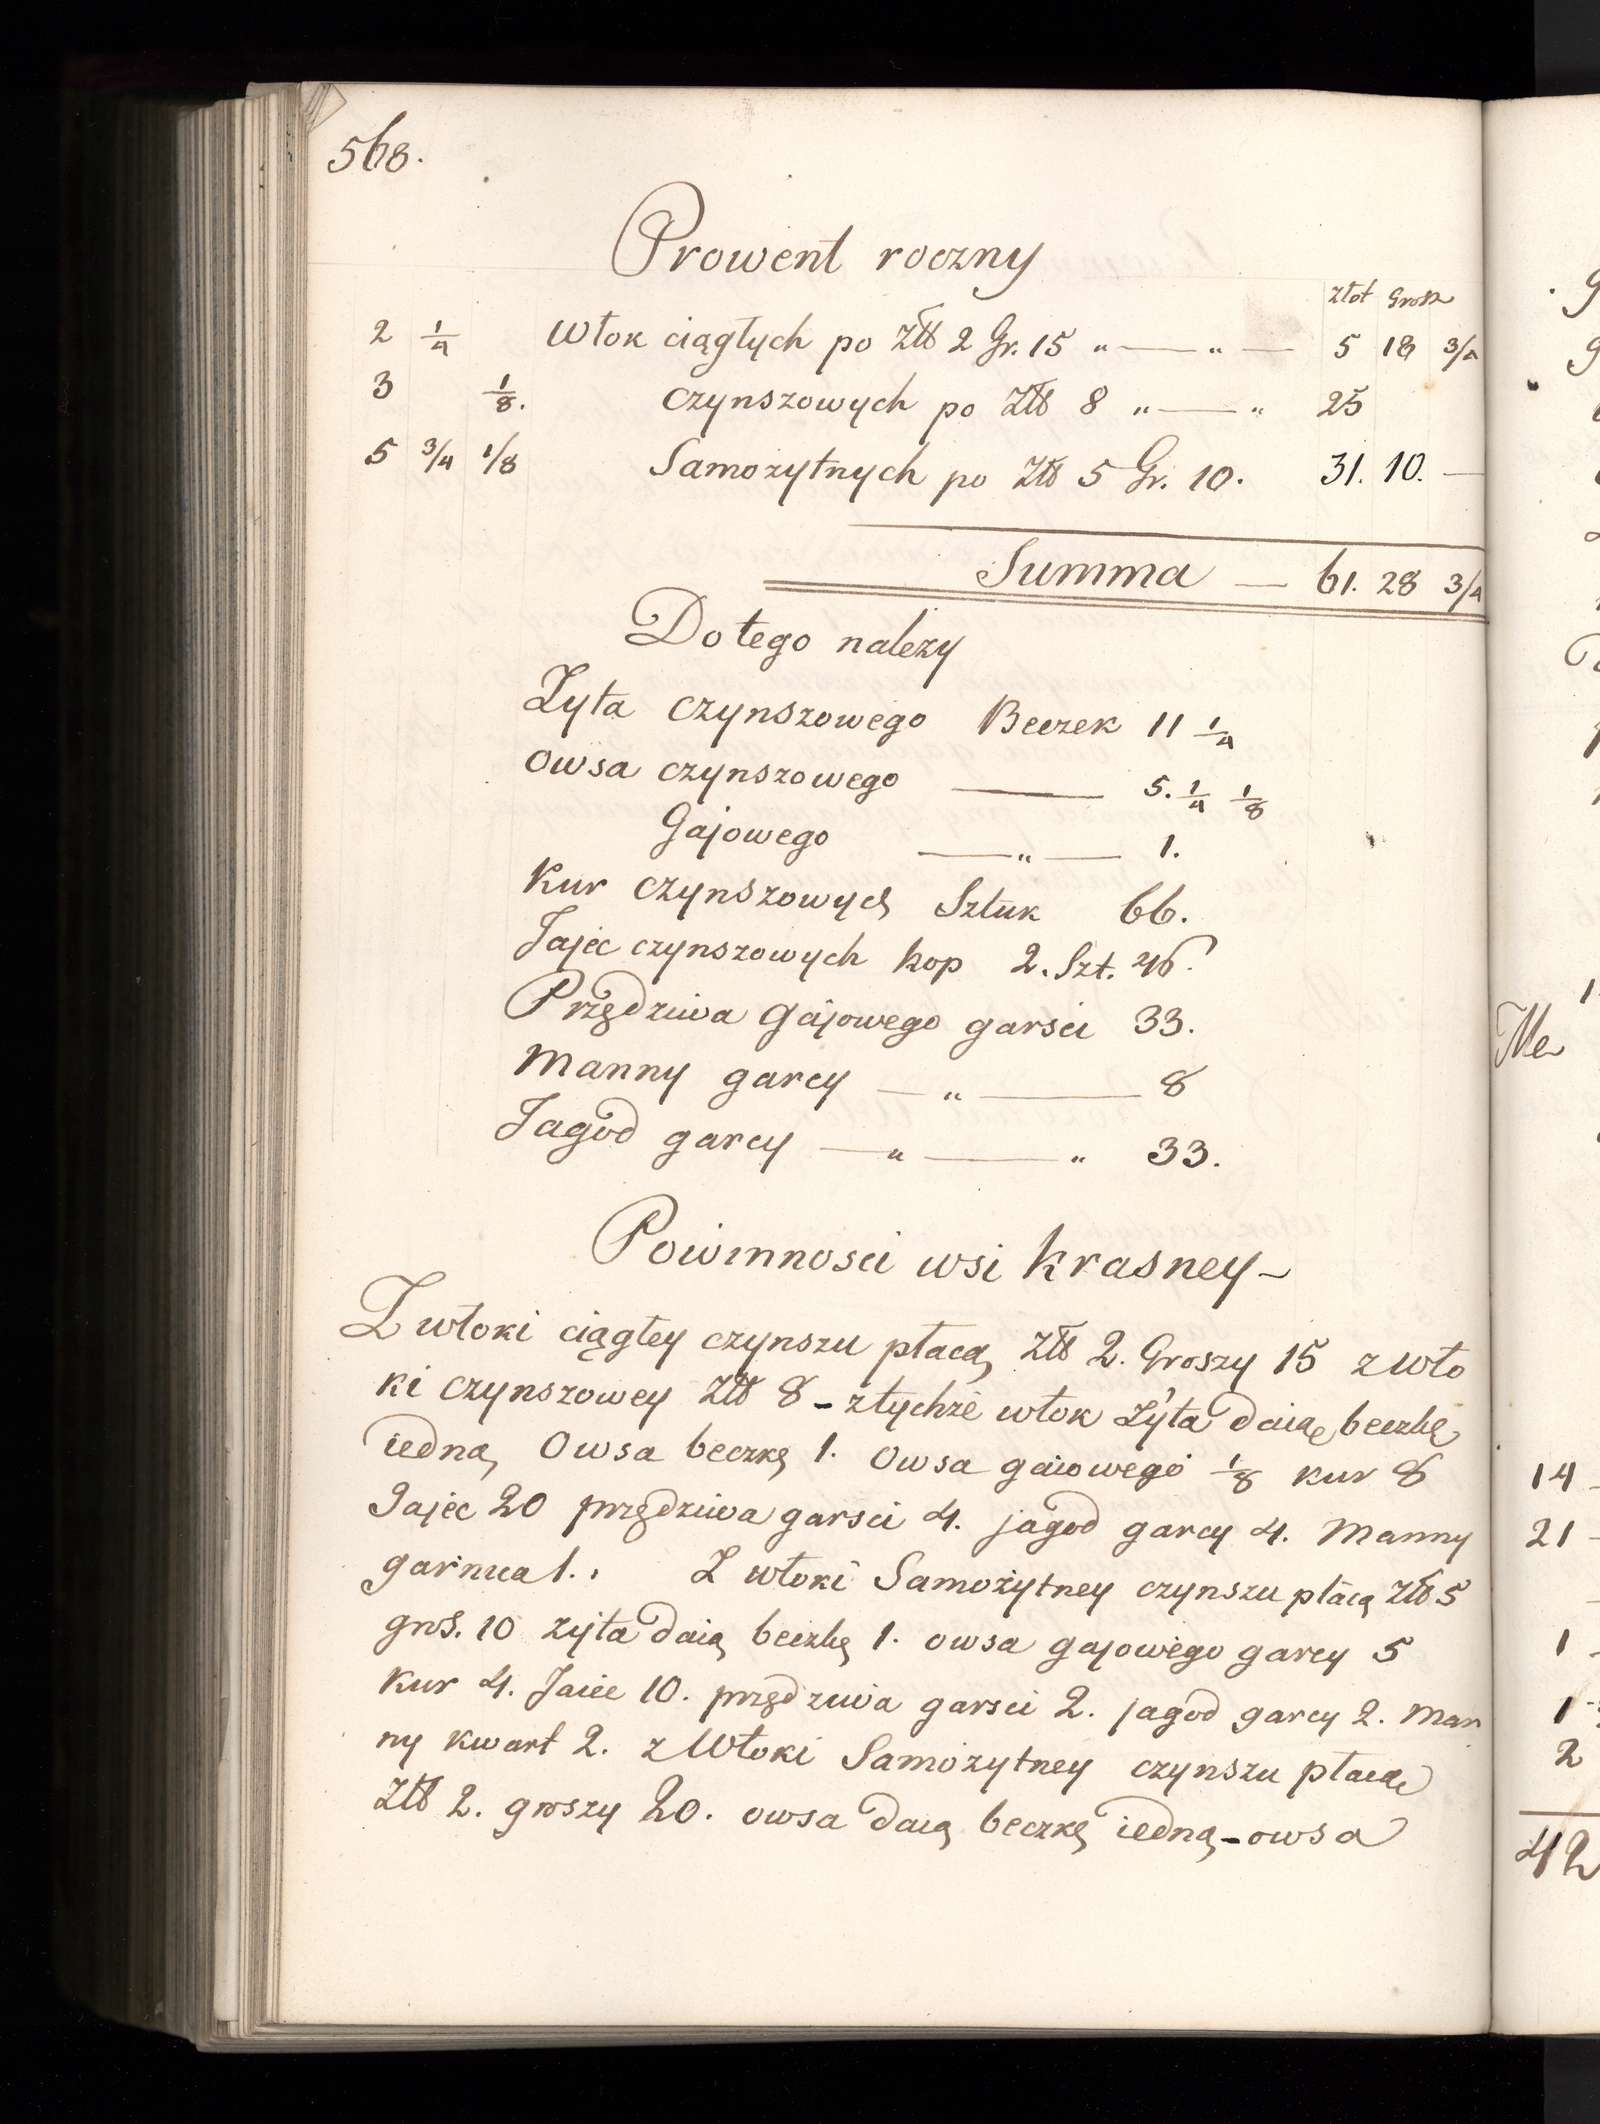 568.
Prowent roczny
złot Grosz
2 1/4 Włok ciągłych po Złł 2 Gr. 15 „ — „ — 5 18 3/4
3 1/8. czynszowych po Złł 8 „ — „ 25
5 3/4 1/8 Samozytnych po Złł 5 Gr. 10. 31. 10. —
Summa — 61. 28 3/4
Do tego nalezy
Zyta czynszowego Beczek 11 1/4
owsa czynszowego — 5. 1/4 1/8
Gajowego — „ — 1.
Kur czynszowych Sztuk 66.
Jajec czynszowych kop 2. Szt. 46.
Przędziwa Gajowego garsci 33.
Manny garcy — „ — 8
Jagod garcy — „ — „ 33.
Powinnosci wsi Krasney —
Z włoki ciągłey czynszu płacą Złł 2. Groszy 15 z wło
ki czynszowey Złł 8 – z tychże włok Zyta daią beczkę
iedną Owsa beczkę 1. Owsa gaiowego 1/8 kur 8
Jajec 20 przędziwa garsci 4. jagod garcy 4. Manny
garnca 1. Z włoki Samożytney czynszu płacą Złł 5
gros. 10 zyta daią beczkę 1. owsa gajowego garcy 5
Kur 4. Jaiec 10. przędziwa garsci 2. jagod garcy 2. Man
ny kwart 2. z Włoki Samożytney czynszu płacą
Złł 2. groszy 20. owsa daią beczkę iedną – owsa
Me
14
21
1
1
2
42